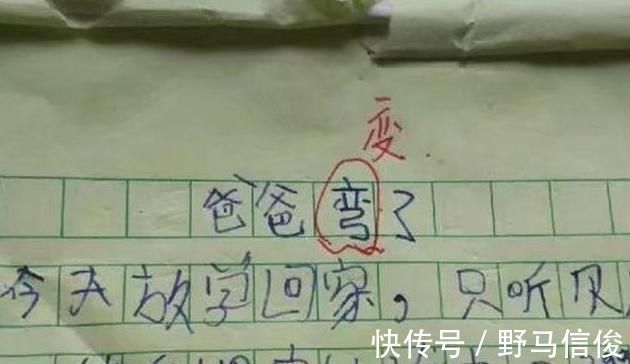 变
爸爸弯了
今天放学回家，只听贝
快传号／野马信俊